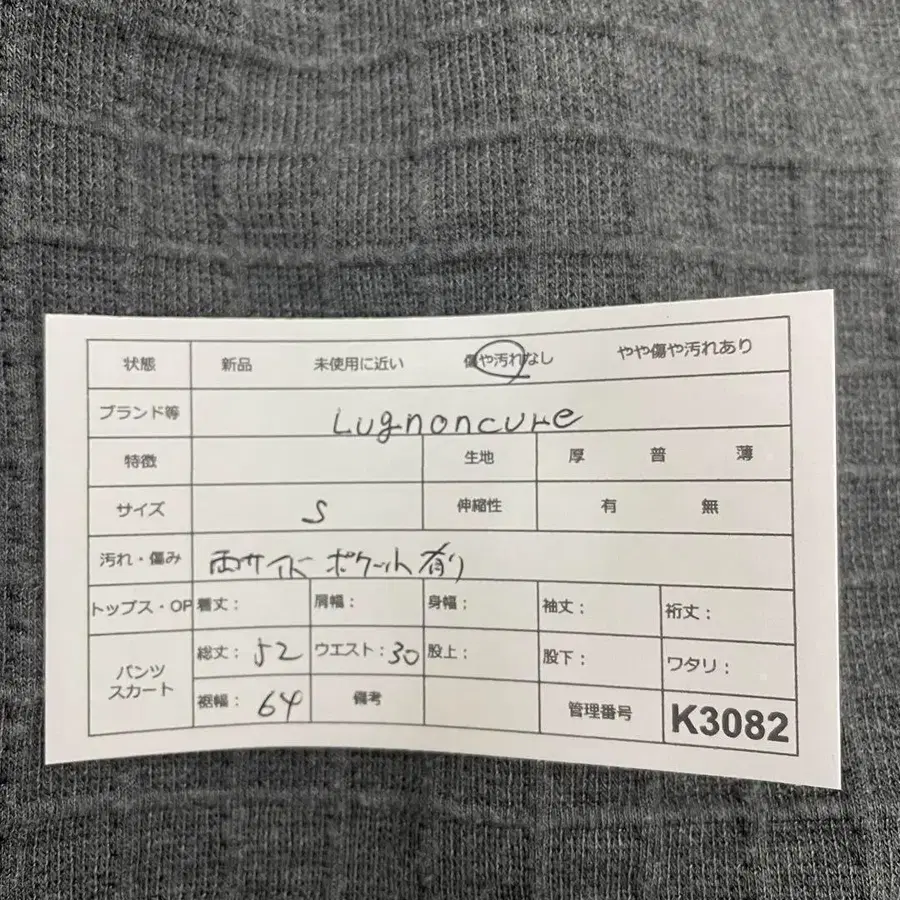 状態 新品 未使用に近い 傷や汚れなし やや傷や汚れあり
ブランド等 Lugnoncure
特徴 生地 厚 普 薄
サイズ S 伸縮性 有 無
汚れ・傷み 両サイドポケット有り
トップス・OP 着丈： 肩幅： 身幅； 袖丈； 裄丈；
パンツ スカート 総丈： 52 ウエスト：30 股上； 股下： ワタリ：
裾幅： 64 備考 管理番号 K3082